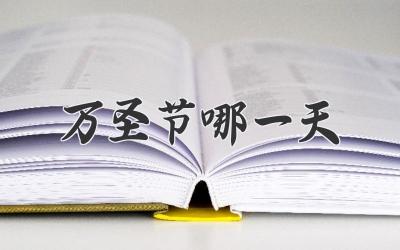 万圣节哪一天